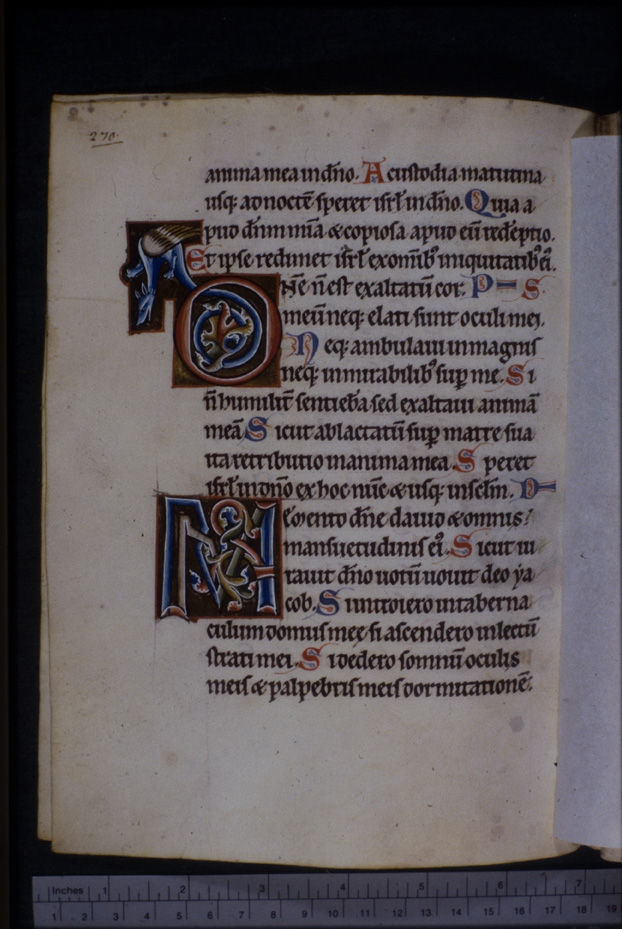 270.
anima mea in dño. A custodia matutina
usq; ad noctē speret isrł in dño. Quia a
pud dñm mīa & copiosa apud eū redēptio.
Et ipse redimet isrł ex omīb; iniquitatib; ei.
DÑE ñ est exaltatū cor. P S.
meū neq; elati sunt oculi mei.
Neq; ambulaui in magnis
neq; in mirabilib; sup me. Si
ñ humilit̄ sentieba sed exaltaui animā
meā Sicut ablactatū sup matre sua
ita retributio in anima mea. Speret
isrł in dño ex hoc nūc & usq; in sclm. P
Memento dñe dauid & omnis
mansuetudinis ei. Sicut iu
rauit dño uotū uouit deo ya
cob. Si introiero in taberna
culum domus mee si ascendero in lectū
strati mei. Si dedero somnū oculis
meis & palpebris meis dormitationē.
Inches 1 2 3 4 5 6 7
1 2 3 4 5 6 7 8 9 10 11 12 13 14 15 16 17 18 19